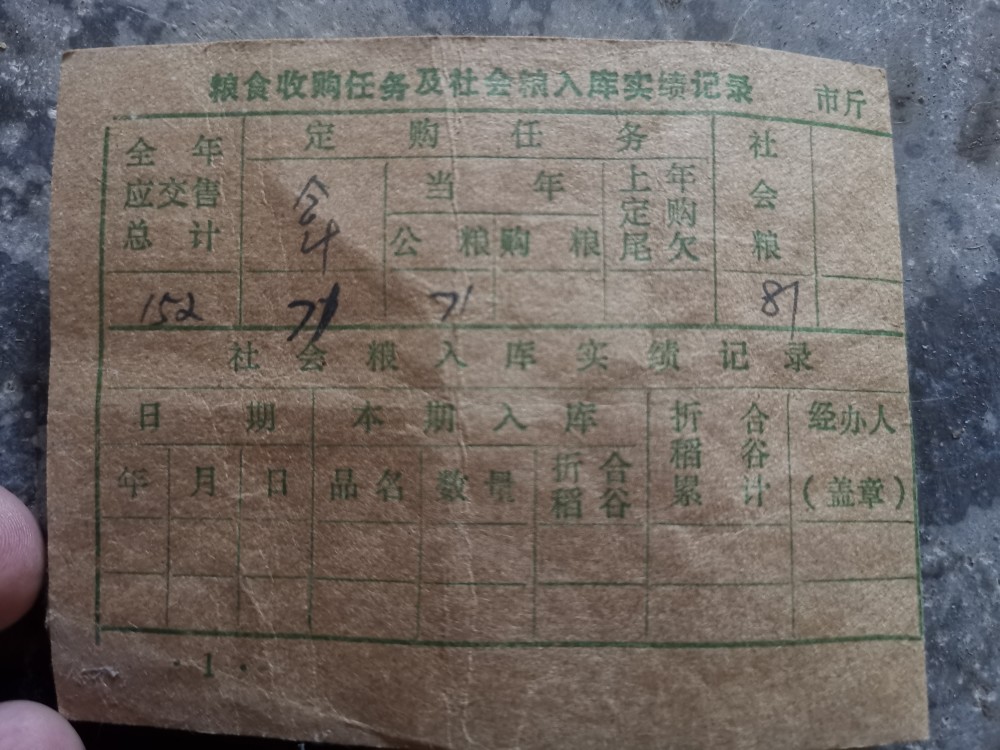 粮食收购任务及社会粮入库实绩记录 市斤
全年应交售总计 定购任务 社会粮
合计 当年 上年定购尾欠
公粮 购粮
152 71 71 81
社会粮入库实绩记录
日期 本期入库 折合稻谷累计 经办人(盖章)
年 月 日 品名 数量 折合稻谷
·1·